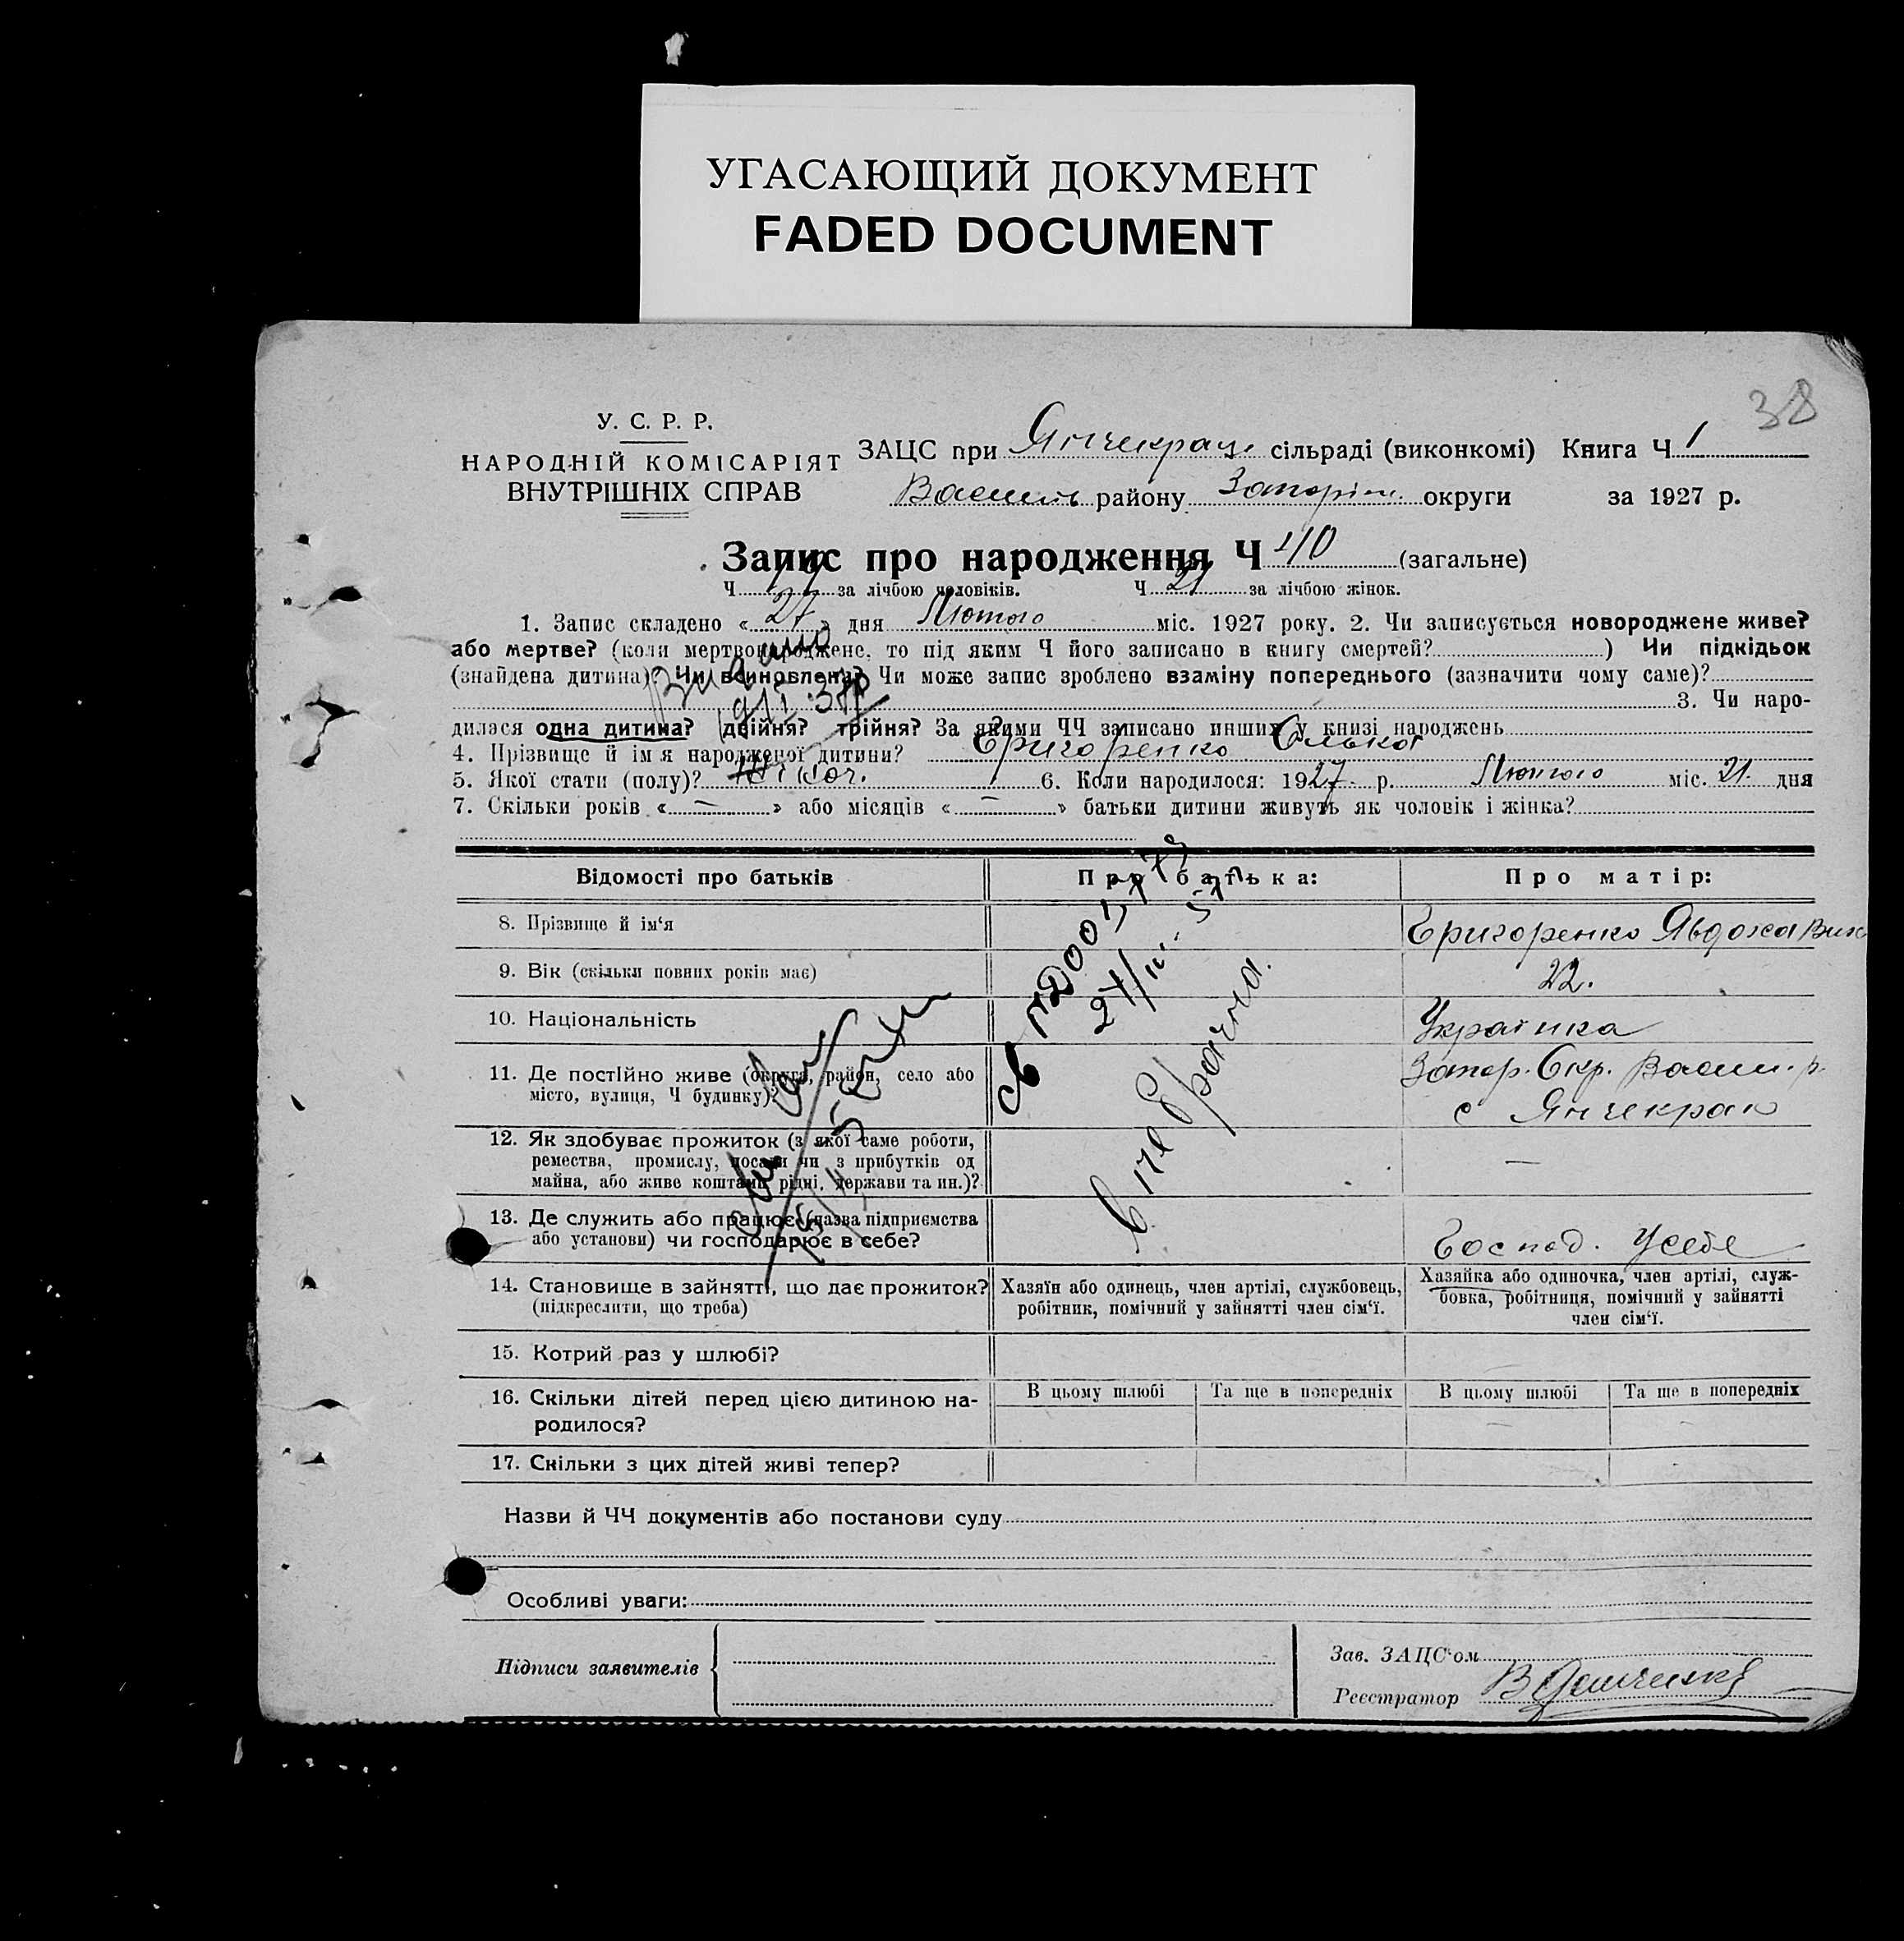 УГАСАЮЩИЙ ДОКУМЕНТ
FADED DOCUMENT
38
У. С. Р. Р.
НАРОДНІЙ КОМІСАРІЯТ
ВНУТРІШНІХ СПРАВ
ЗАЦС при Янчекрац. сільраді (виконкомі) Книга Ч 1
Василь району Запоріж. округи за 1927 р.
Запис про народження Ч 40 (загальне)
Ч 19 за лічбою чоловіків. Ч 21 за лічбою жінок.
1. Запис складено « 27 » дня Лютого міс. 1927 року. 2. Чи записується новороджене живе?
або мертве? (коли мертвонароджене, то під яким Ч його записано в книгу смертей? ) Чи підкідьок
(знайдена дитина)? Чи всиновлена? Чи може запис зроблено взаміну попереднього (зазначити чому саме)?
Видано
3. Чи наро-
дилася одна дитина? двійня? трійня? За якими ЧЧ записано инших у книзі народжень
4. Прізвище й ім‘я народженої дитини? Григоренко Олька
5. Якої стати (полу)? Жіноч. 6. Коли народилося: 1927 р. Лютого міс. 21 дня
7. Скільки років « — » або місяців « — » батьки дитини живуть як чоловік і жінка?
Відомості про батьків Про батька: Про матір:
8. Прізвище й ім‘я Григоренко Явдоха
9. Вік (скільки повних років має) 22.
10. Національність Українка
11. Де постійно живе (округа, район, село або
місто, вулиця, Ч будинку)? Запор. Окр. Васил. р.
с Янчекрак
12. Як здобуває прожиток (з якої саме роботи,
ремества, промислу, посади чи з прибутків од
майна, або живе коштами рідні, держави та ин.)? —
13. Де служить або працює (назва підприємства
або установи) чи господарює в себе? Господ. Усебе
14. Становище в зайнятті, що дає прожиток?
(підкреслити, що треба)
Хазяїн або одинець, член артілі, службовець,
робітник, помічний у зайнятті член сім‘ї.
Хазяйка або одиночка, член артілі, служ-
бовка, робітниця, помічний у зайнятті
член сім‘ї.
внебрачна.
15. Котрий раз у шлюбі?
16. Скільки дітей перед цією дитиною на-
родилося?
В цьому шлюбі Та ще в попередніх В цьому шлюбі Та ще в попередніх
— —
17. Скільки з цих дітей живі тепер?
Назви й ЧЧ документів або постанови суду
Особливі уваги:
Підписи заявителів
Зав. ЗАЦС‘ом
Реєстратор